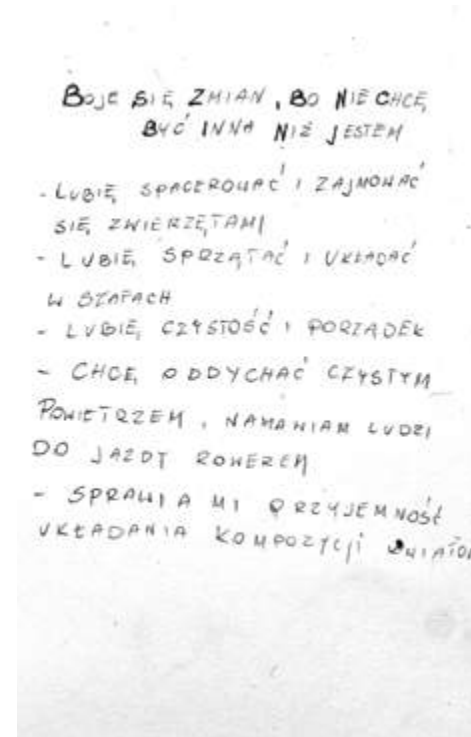 BOJE SIĘ ZMIAN, BO NIE CHCĘ
BYĆ INNA NIŻ JESTEM
- LUBIĘ SPACEROWAĆ I ZAJMOWAĆ
SIĘ ZWIERZĘTAMI
- LUBIĘ SPRZĄTAĆ I UKŁADAĆ
W SZAFACH
- LUBIĘ CZYSTOŚĆ I PORZĄDEK
- CHCĘ ODDYCHAĆ CZYSTYM
POWIETRZEM, NAMAWIAM LUDZI
DO JAZDY ROWEREM
- SPRAWIA MI PRZYJEMNOŚĆ
UKŁADANIA KOMPOZYCJI